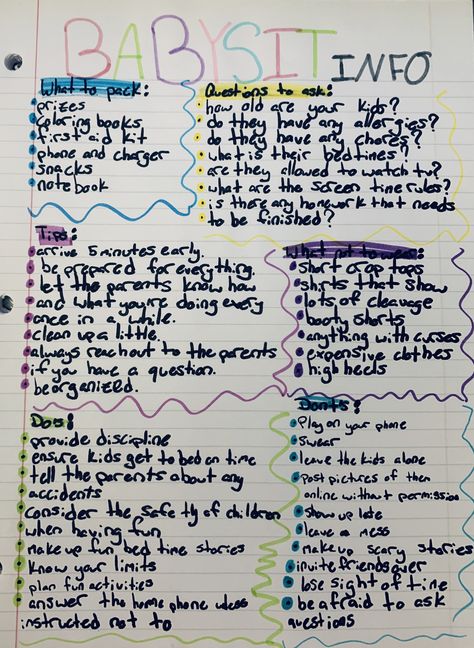 BABYSIT INFO
What to pack:
prizes
coloring books
first aid kit
phone and charger
snacks
notebook
Questions to ask:
how old are your kids?
do they have any allergies?
do they have any chores?
what is their bedtimes?
are they allowed to watch tv?
what are the screen time rules?
is there any homework that needs
to be finished?
Tips:
arrive 5 minutes early.
be prepared for everything.
let the parents know how
and what you're doing every
once in a while.
clean up a little.
always reach out to the parents
if you have a question.
be organized.
What not to wear:
short crop tops
shirts that show
lots of cleavage
booty shorts
anything with curses
expensive clothes
high heels
Dos:
provide discipline
ensure kids get to bed on time
tell the parents about any
accidents
consider the safety of children
when having fun
make up fun bed time stories
know your limits
plan fun activities
answer the home phone uless
instructed not to
Don'ts:
Play on your phone
swear
leave the kids alone
post pictures of then
online without permission
show up late
leave a mess
make up scary stories
invite friends over
lose sight of time
be afraid to ask
questions